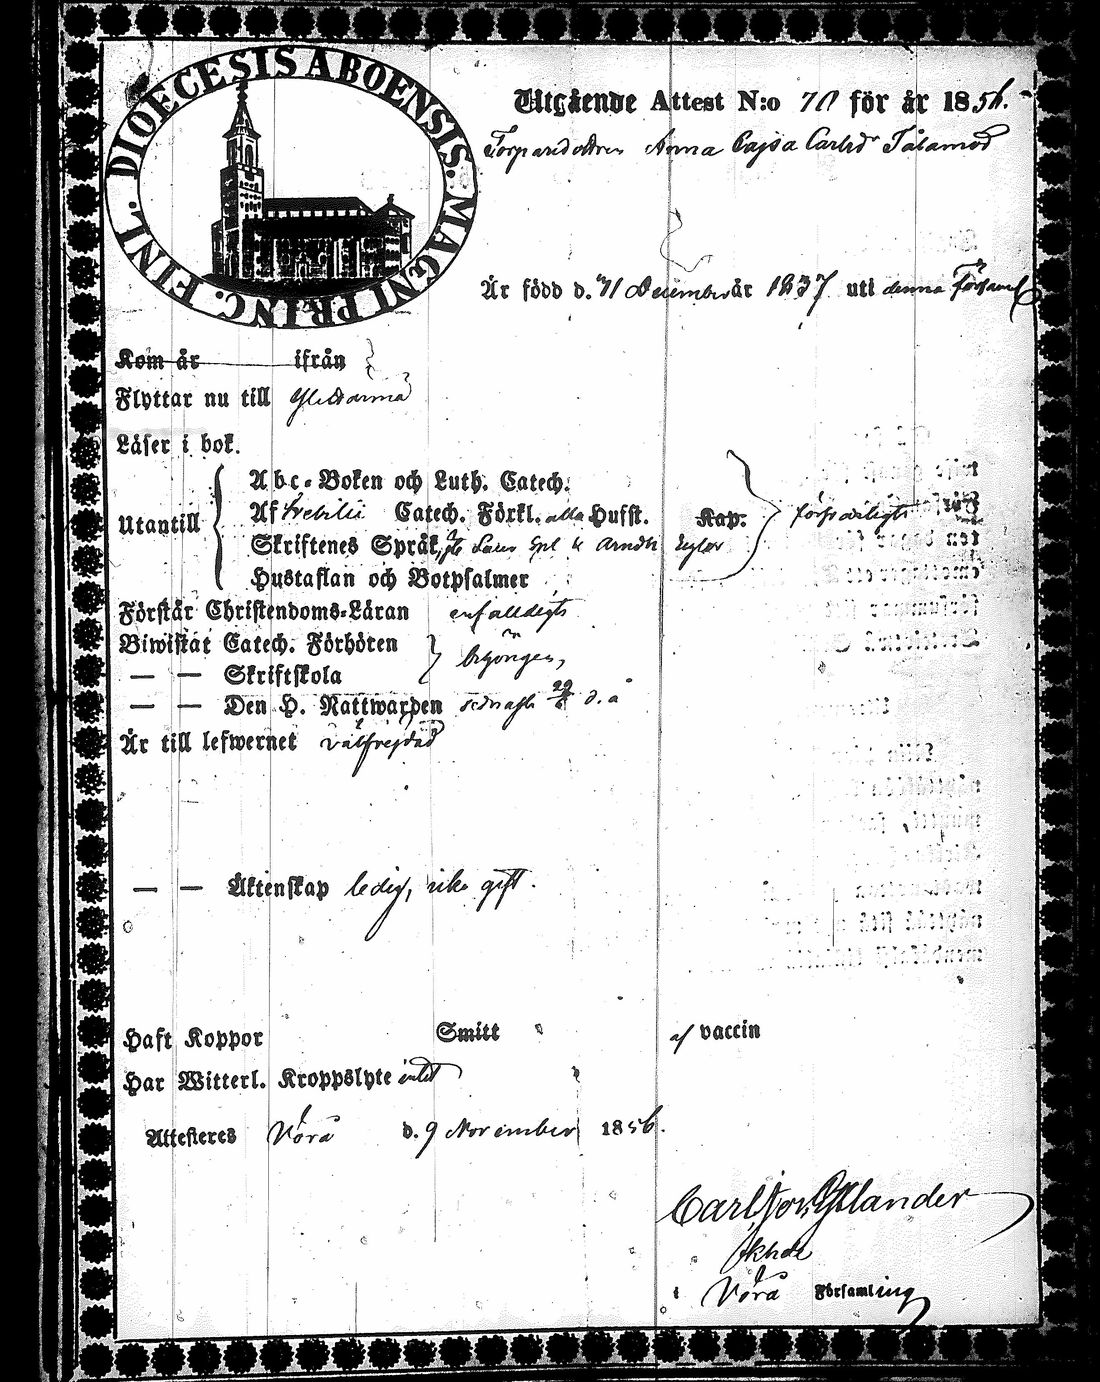 DIOECESIS ABOENSIS. MAGNI PRINC. FINL.
Utgående Attest N:o 70 för år 1856.
Anna Cajsa Carlsdr Tålamod
Är född d. 11 December år 1837 uti denna Församl
Kom år ifrån
Flyttar nu till
Läser i bok.
Abc-Boken och Luth. Catech.
Utantill Af Svebilii Catech. Förkl. alla Husst. Kap. försvarligt
Skriftenes Språk,
Hustaflan och Botpsalmer
Förstår Christendoms-Läran enfaldigt
Biwistat Catech. Förhören
— — Skriftskola
— — Den H. Nattwarden sednast d. å
Är till lefwernet välfrejdad
— — Äktenskap ledig, icke gift.
Haft Koppor Smitt af vaccin
Har Witterl. Kroppslyte intet
Attesteras Vörå d. 9 November 1856.
Carl
i Vörå Församling